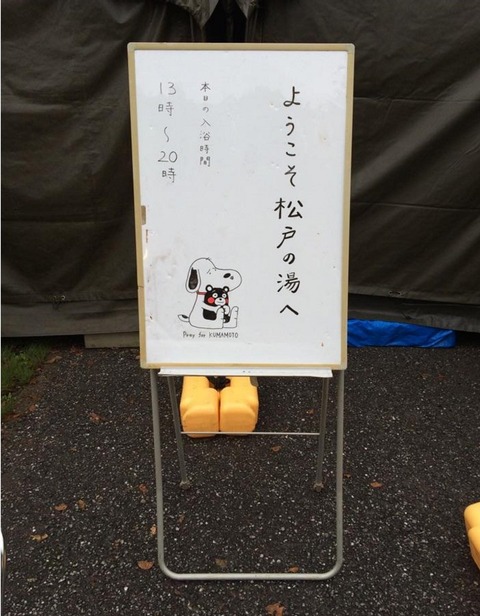 ようこそ松戸の湯へ
本日の入浴時間
13時〜20時
Pray for KUMAMOTO